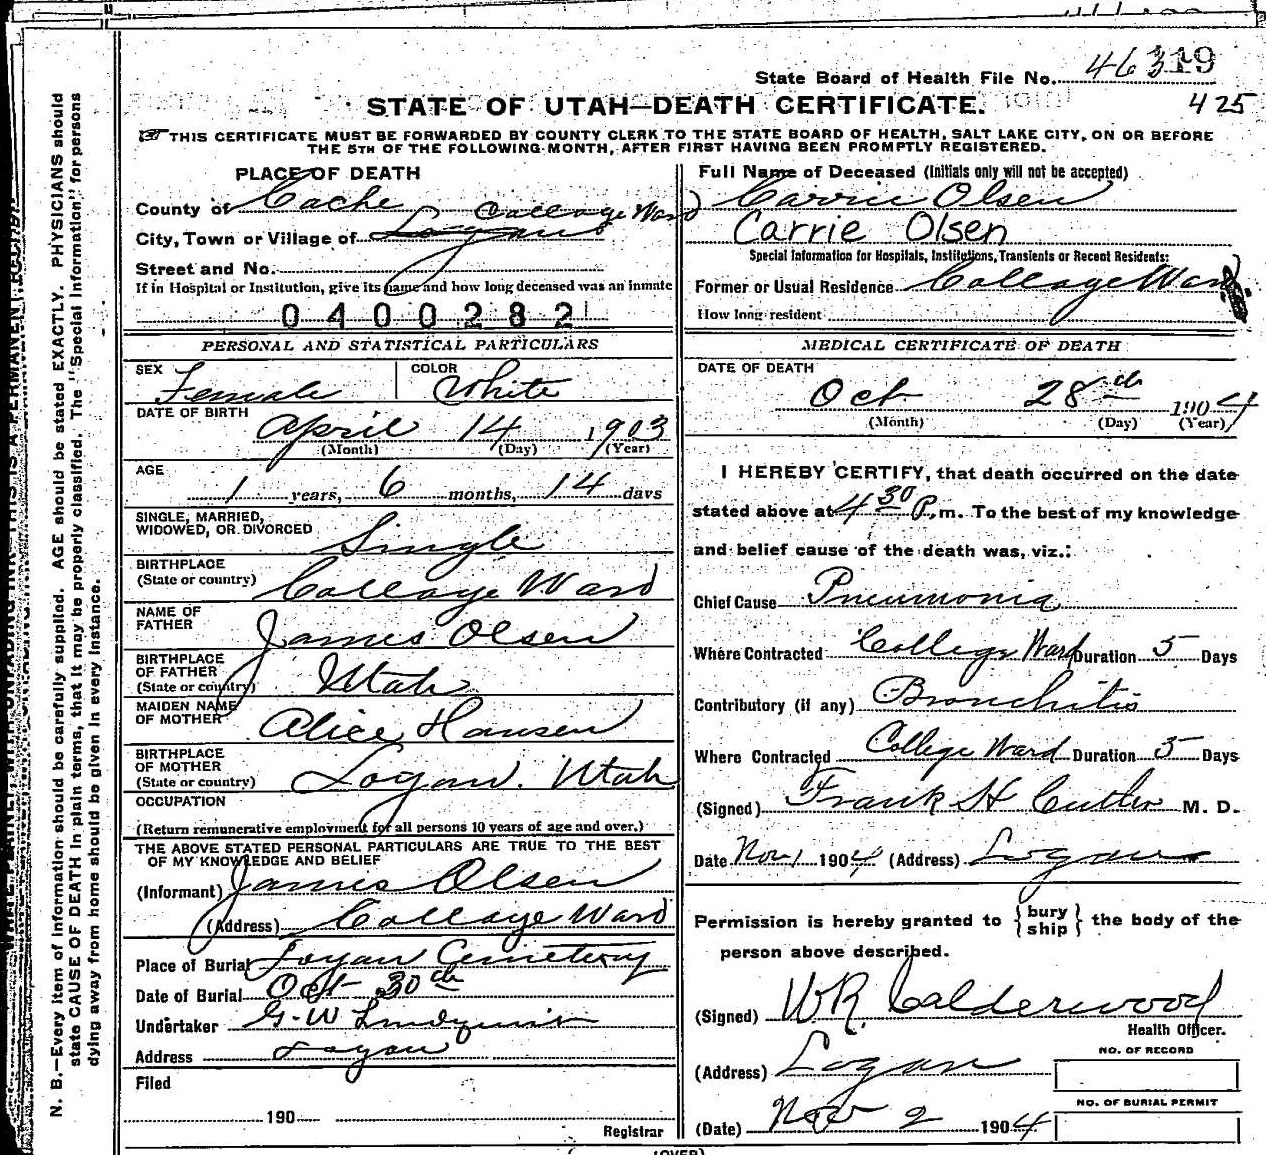 State Board of Health File No. 46319
STATE OF UTAH—DEATH CERTIFICATE.
425
THIS CERTIFICATE MUST BE FORWARDED BY COUNTY CLERK TO THE STATE BOARD OF HEALTH, SALT LAKE CITY, ON OR BEFORE
THE 5TH OF THE FOLLOWING MONTH, AFTER FIRST HAVING BEEN PROMPTLY REGISTERED.
PLACE OF DEATH
County of Cache
Collage Ward
City, Town or Village of Logan
Street and No.
If in Hospital or Institution, give its name and how long deceased was an inmate
0400282
PERSONAL AND STATISTICAL PARTICULARS
SEX Female COLOR White
DATE OF BIRTH
April 14 1903
(Month) (Day) (Year)
AGE
1 years, 6 months, 14 days
SINGLE, MARRIED,
WIDOWED, OR DIVORCED Single
BIRTHPLACE
(State or country) Collage Ward
NAME OF
FATHER James Olsen
BIRTHPLACE
OF FATHER
(State or country) Utah
MAIDEN NAME
OF MOTHER Alice Hansen
BIRTHPLACE
OF MOTHER
(State or country) Logan. Utah
OCCUPATION
(Return remunerative employment for all persons 10 years of age and over.)
THE ABOVE STATED PERSONAL PARTICULARS ARE TRUE TO THE BEST
OF MY KNOWLEDGE AND BELIEF
(Informant) James Olsen
(Address) Collage Ward
Place of Burial Logan Cemetery
Date of Burial Oct 30th
Undertaker G-W Lindquist
Address Logan
Filed
190
Registrar
Full Name of Deceased (Initials only will not be accepted)
Carrie Olsen
Carrie Olsen
Special Information for Hospitals, Institutions, Transients or Recent Residents:
Former or Usual Residence Collage Ward
How long resident
MEDICAL CERTIFICATE OF DEATH
DATE OF DEATH
Oct 28th 1904
(Month) (Day) (Year)
I HEREBY CERTIFY, that death occurred on the date
stated above at 4 30 P. m. To the best of my knowledge
and belief cause of the death was, viz.:
Chief Cause Pneumonia
Where Contracted College Ward Duration 5 Days
Contributory (if any) Bronchitis
Where Contracted College Ward Duration 5 Days
(Signed) Frank H Cutler M. D.
Date Nov 1 1904 (Address) Logan
Permission is hereby granted to { bury ship } the body of the
person above described.
(Signed) WR. Calderwood
Health Officer.
(Address) Logan
NO. OF RECORD
NO. OF BURIAL PERMIT
(Date) Nov 2 1904
(OVER)
N. B.—Every item of information should be carefully supplied. AGE should be stated EXACTLY. PHYSICIANS should
state CAUSE OF DEATH in plain terms, that it may be properly classified. The "Special Information" for persons
dying away from home should be given in every instance.